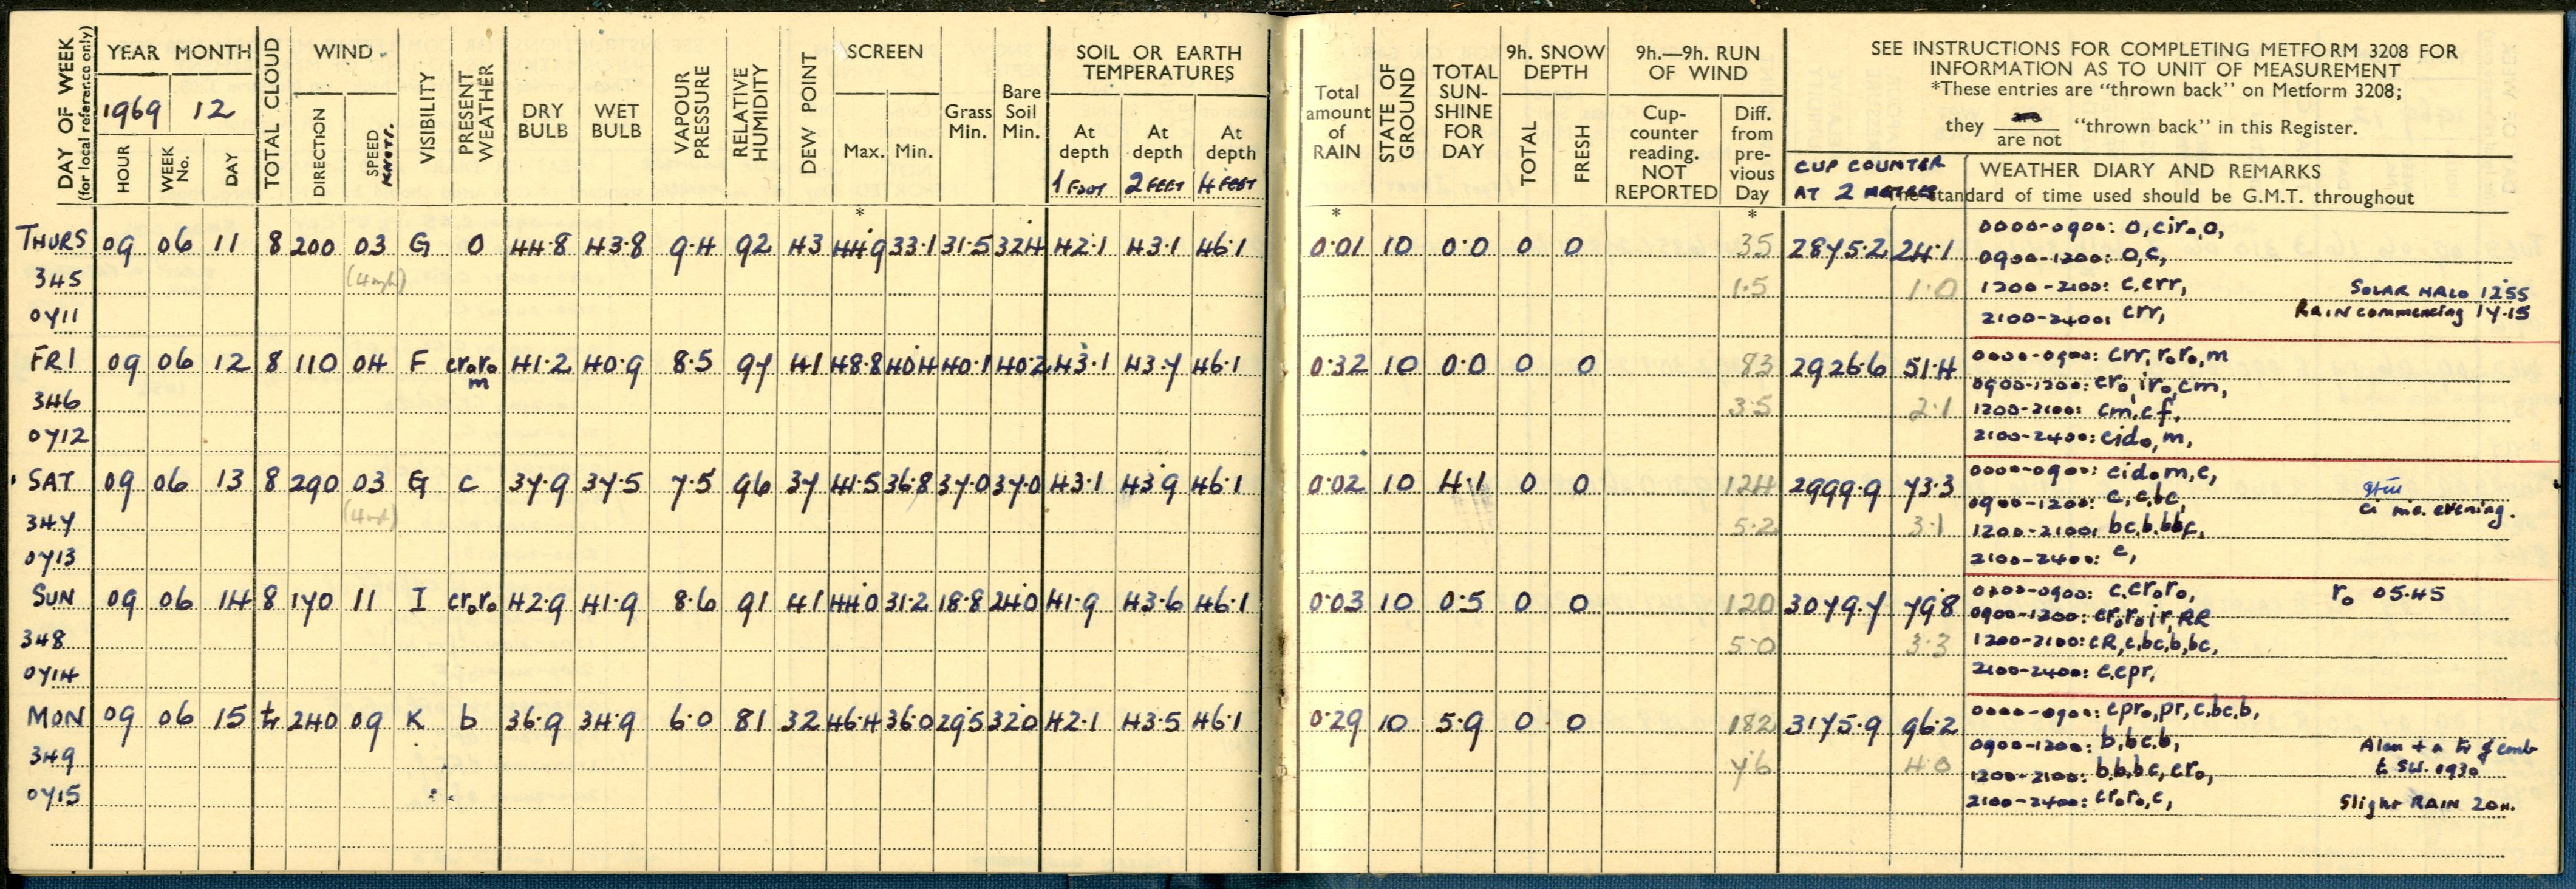 DAY OF WEEK (for local referance only)
YEAR MONTH
1969 12
HOUR WEEK No. DAY
TOTAL CLOUD
WIND
DIRECTION SPEED KNOTS.
VISIBILITY
PRESENT WEATHER
DRY BULB
WET BULB
VAPOUR PRESSURE
RELATIVE HUMIDITY
DEW POINT
SCREEN
Max. Min.
*
Grass Min.
Bare Soil Min.
SOIL OR EARTH TEMPERATURES
At depth 1 FOOT At depth 2 FEET At depth 4 FEET
Total amount of RAIN
*
STATE OF GROUND
TOTAL SUN-SHINE FOR DAY
9h. SNOW DEPTH
TOTAL FRESH
9h.—9h. RUN OF WIND
Cup-counter reading. NOT REPORTED
Diff. from pre-vious Day
*
SEE INSTRUCTIONS FOR COMPLETING METFORM 3208 FOR
INFORMATION AS TO UNIT OF MEASUREMENT
*These entries are "thrown back" on Metform 3208;
they are
are not "thrown back" in this Register.
CUP COUNTER
AT 2 METRES
WEATHER DIARY AND REMARKS
The standard of time used should be G.M.T. throughout
THURS 09 06 11 8 200 03 G O 44.8 43.8 9.4 92 43 44.9 33.1 31.5 32.4 42.1 43.1 46.1 0.01 10 0.0 0 0 35 2875.2 24.1
0000-0900: o, cir₀, o,
0900-1200: o, c,
345 (4mph) 1.5 1.0
1200-2100: c, crr, SOLAR HALO 1255
0711
2100-2400: crr, RAIN commencing 17.15
FRI 09 06 12 8 110 04 F cr₀r₀ m 41.2 40.9 8.5 97 41 48.8 40.4 40.1 40.2 43.1 43.7 46.1 0.32 10 0.0 0 0 83 2926.6 51.4
0000-0900: crr, r₀r₀, m
0900-1200: cr₀, ir₀, cm,
346 3.5 2.1
1200-2100: cm, cf,
0712
2100-2400: cid₀, m,
SAT 09 06 13 8 290 03 G c 37.9 37.5 7.5 96 37 41.5 36.8 37.0 37.0 43.1 43.9 46.1 0.02 10 4.1 0 0 124 2999.9 73.3
0000-0900: cid₀, m, c,
0900-1200: c, c, bc,
347 5.2 3.1
1200-2100: bc, b, bbc, evening.
0713
2100-2400: c,
SUN 09 06 14 8 170 11 I cr₀r₀ 42.9 41.9 8.6 91 41 44.0 31.2 18.8 24.0 41.9 43.6 46.1 0.03 10 0.5 0 0 120 3079.7 79.8
0000-0900: c, cr₀r₀, r₀ 05.45
0900-1200: cr₀r₀, ir, RR
348 5.0 3.3
1200-2100: cR, c, bc, b, bc,
0714
2100-2400: c, cpr,
MON 09 06 15 tr 240 09 K b 36.9 34.9 6.0 81 32 46.4 36.0 29.5 32.0 42.1 43.5 46.1 0.29 10 5.9 0 0 182 3175.9 96.2
0000-0900: cpr₀, pr, c, bc, b,
0900-1200: b, bc, b,
349 7.6 4.0
1200-2100: b, b, bc, cr₀, SW. 0930
0715
2100-2400: cr₀r₀, c, Slight RAIN 20H.